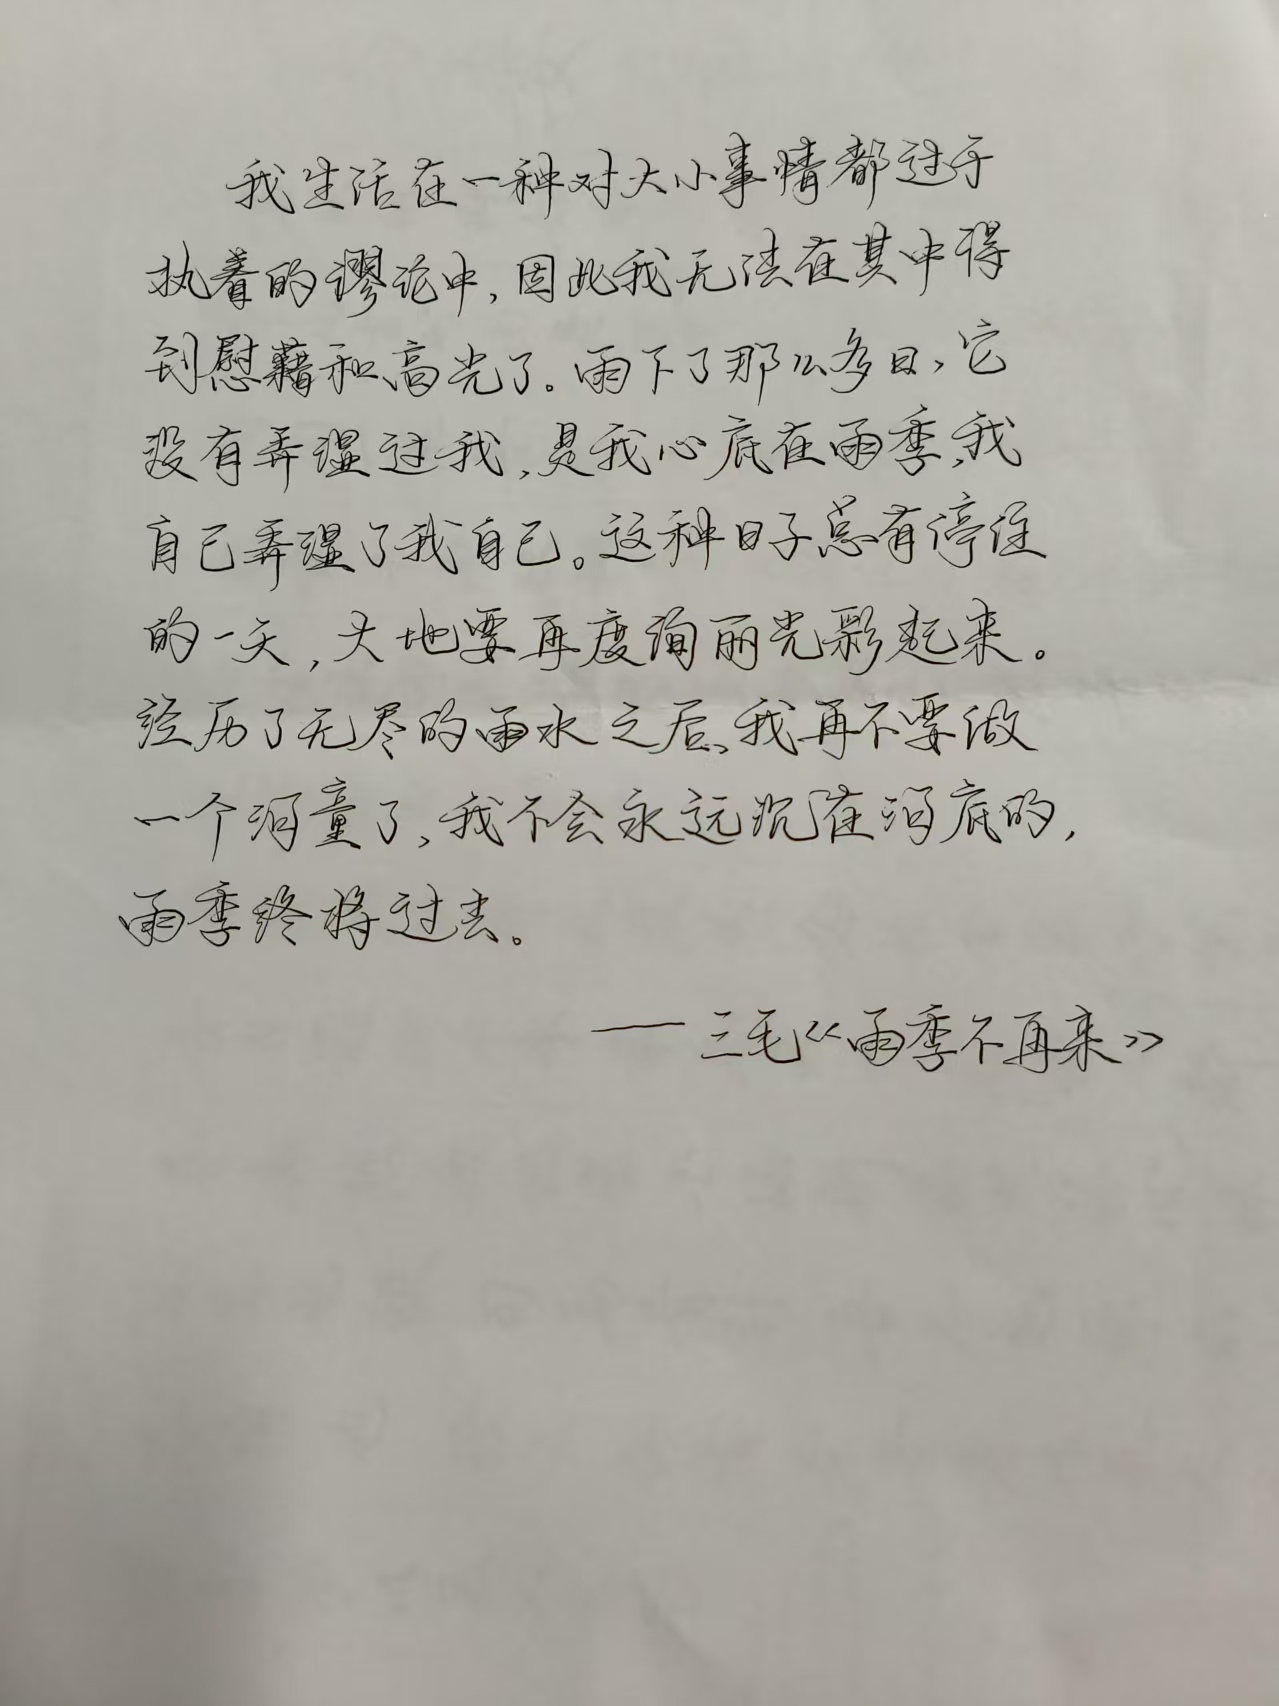 我生活在一种对大小事情都过于
执着的谬论中,因此我无法在其中得
到慰藉和高光了。雨下了那么多日、它
没有弄湿过我,是我心底在雨季,我
自己弄湿了我自己。这种日子总有停住
的一天,大地要再度绚丽光彩起来。
经历了无尽的雨水之后、我再不要做
一个河童了,我不会永远沉在河底的,
雨季终将过去。
——三毛《雨季不再来》